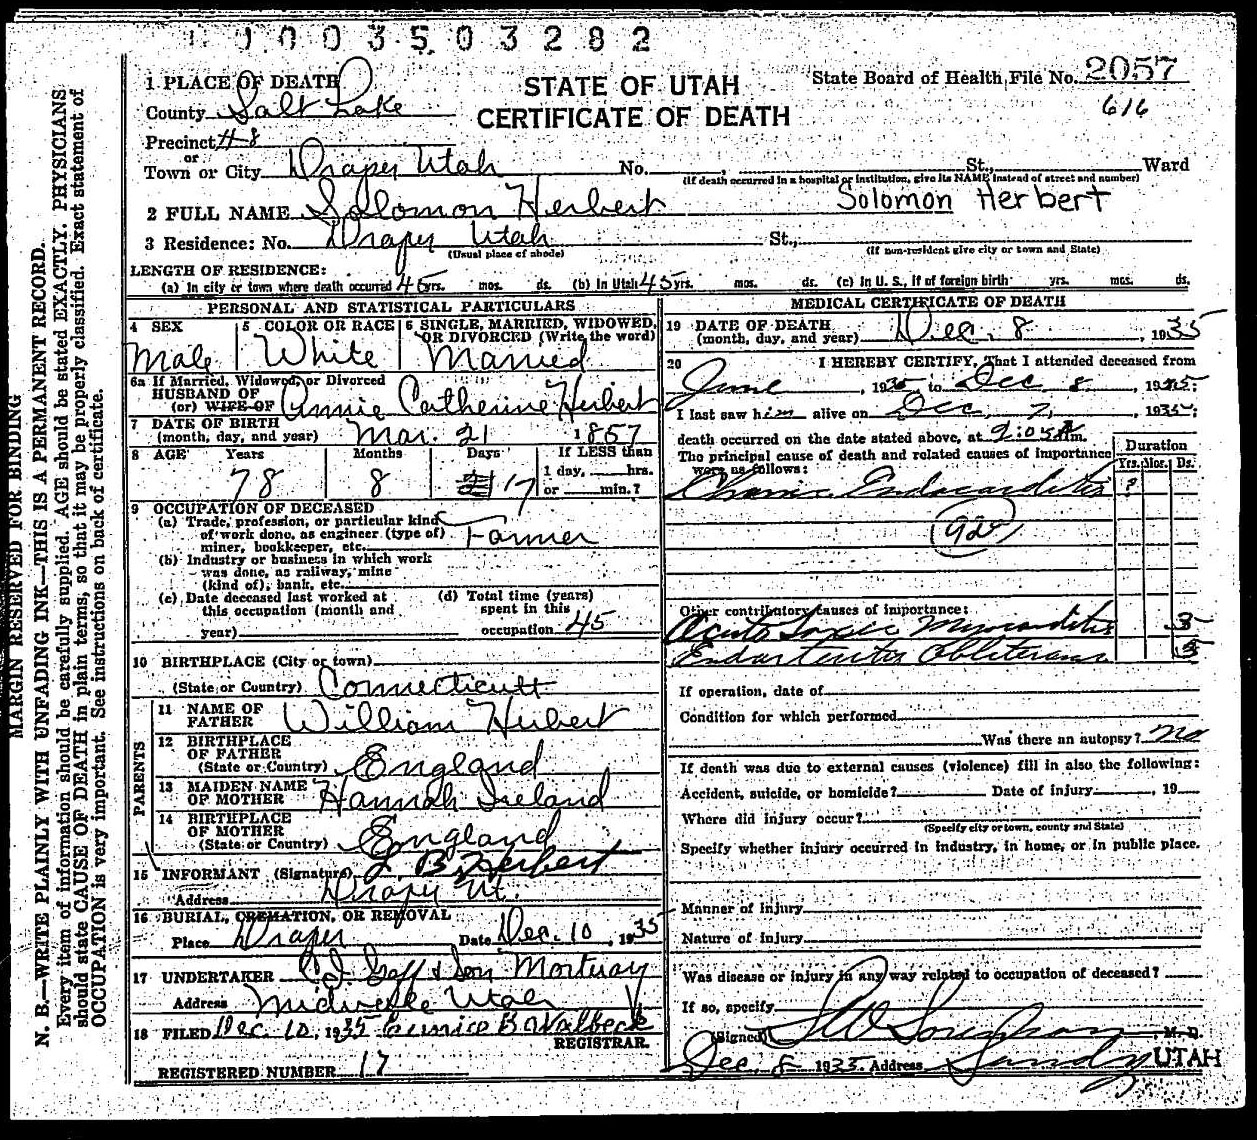 1 0 0 3 5 0 3 2 8 2
1 PLACE OF DEATH
STATE OF UTAH
CERTIFICATE OF DEATH
State Board of Health File No. 2057
616
County Salt Lake
Precinct #8
or
Town or City Draper Utah No. St., Ward
(If death occurred in a hospital or institution, give its NAME instead of street and number)
2 FULL NAME Solomon Herbert Solomon Herbert
3 Residence: No. Draper Utah St.,
(Usual place of abode) (If non-resident give city or town and State)
LENGTH OF RESIDENCE:
(a) In city or town where death occurred 45 yrs. mos. ds. (b) In Utah 45 yrs. mos. ds. (c) In U. S., if of foreign birth yrs. mos. ds.
PERSONAL AND STATISTICAL PARTICULARS
4 SEX 5 COLOR OR RACE 6 SINGLE, MARRIED, WIDOWED, OR DIVORCED (Write the word)
Male White Married
6a If Married, Widowed, or Divorced
HUSBAND OF
(or) WIFE OF Annie Catherine Herbert
7 DATE OF BIRTH
(month, day, and year) Mar. 21 1857
8 AGE Years Months Days If LESS than
1 day, hrs.
or min.?
78 8 17
9 OCCUPATION OF DECEASED
(a) Trade, profession, or particular kind
of work done, as engineer (type of)
miner, bookkeeper, etc. Farmer
(b) Industry or business in which work
was done, as railway, mine
(kind of), bank, etc.
(c) Date deceased last worked at
this occupation (month and
year)
(d) Total time (years)
spent in this
occupation 45
10 BIRTHPLACE (City or town)
(State or Country) Connecticutt
PARENTS
11 NAME OF
FATHER William Herbert
12 BIRTHPLACE
OF FATHER
(State or Country) England
13 MAIDEN NAME
OF MOTHER Hannah Ireland
14 BIRTHPLACE
OF MOTHER
(State or Country) England
15 INFORMANT (Signature) J. B. Herbert
Address Draper Ut.
16 BURIAL, CREMATION, OR REMOVAL
Place Draper Date Dec. 10, 1935
17 UNDERTAKER Goff & Son Mortuary
Address Midvale Utah
18 FILED Dec 10, 1935 Eunice B Walbeck
REGISTRAR.
REGISTERED NUMBER 17
MEDICAL CERTIFICATE OF DEATH
19 DATE OF DEATH
(month, day, and year) Dec. 8, 1935
20 I HEREBY CERTIFY, That I attended deceased from
June, 1935 to Dec 8, 1935;
I last saw him alive on Dec. 7, 1935;
death occurred on the date stated above, at 9:05 A m.
The principal cause of death and related causes of importance
were as follows:
Duration
Yrs. Mos. Ds.
Chronic Endocarditis ?
92
Other contributory causes of importance:
Acute Toxic Myocarditis 3
Endarteritis Obliterans
If operation, date of
Condition for which performed
Was there an autopsy? No
If death was due to external causes (violence) fill in also the following:
Accident, suicide, or homicide? Date of injury, 19
Where did injury occur?
(Specify city or town, county and State)
Specify whether injury occurred in industry, in home, or in public place.
Manner of injury
Nature of injury
Was disease or injury in any way related to occupation of deceased?
If so, specify
(Signed) , M. D.
Dec. 8 1935 Address Sandy UTAH
MARGIN RESERVED FOR BINDING
N. B.—WRITE PLAINLY WITH UNFADING INK—THIS IS A PERMANENT RECORD.
Every item of information should be carefully supplied. AGE should be stated EXACTLY. PHYSICIANS
should state CAUSE OF DEATH in plain terms, so that it may be properly classified. Exact statement of
OCCUPATION is very important. See instructions on back of certificate.